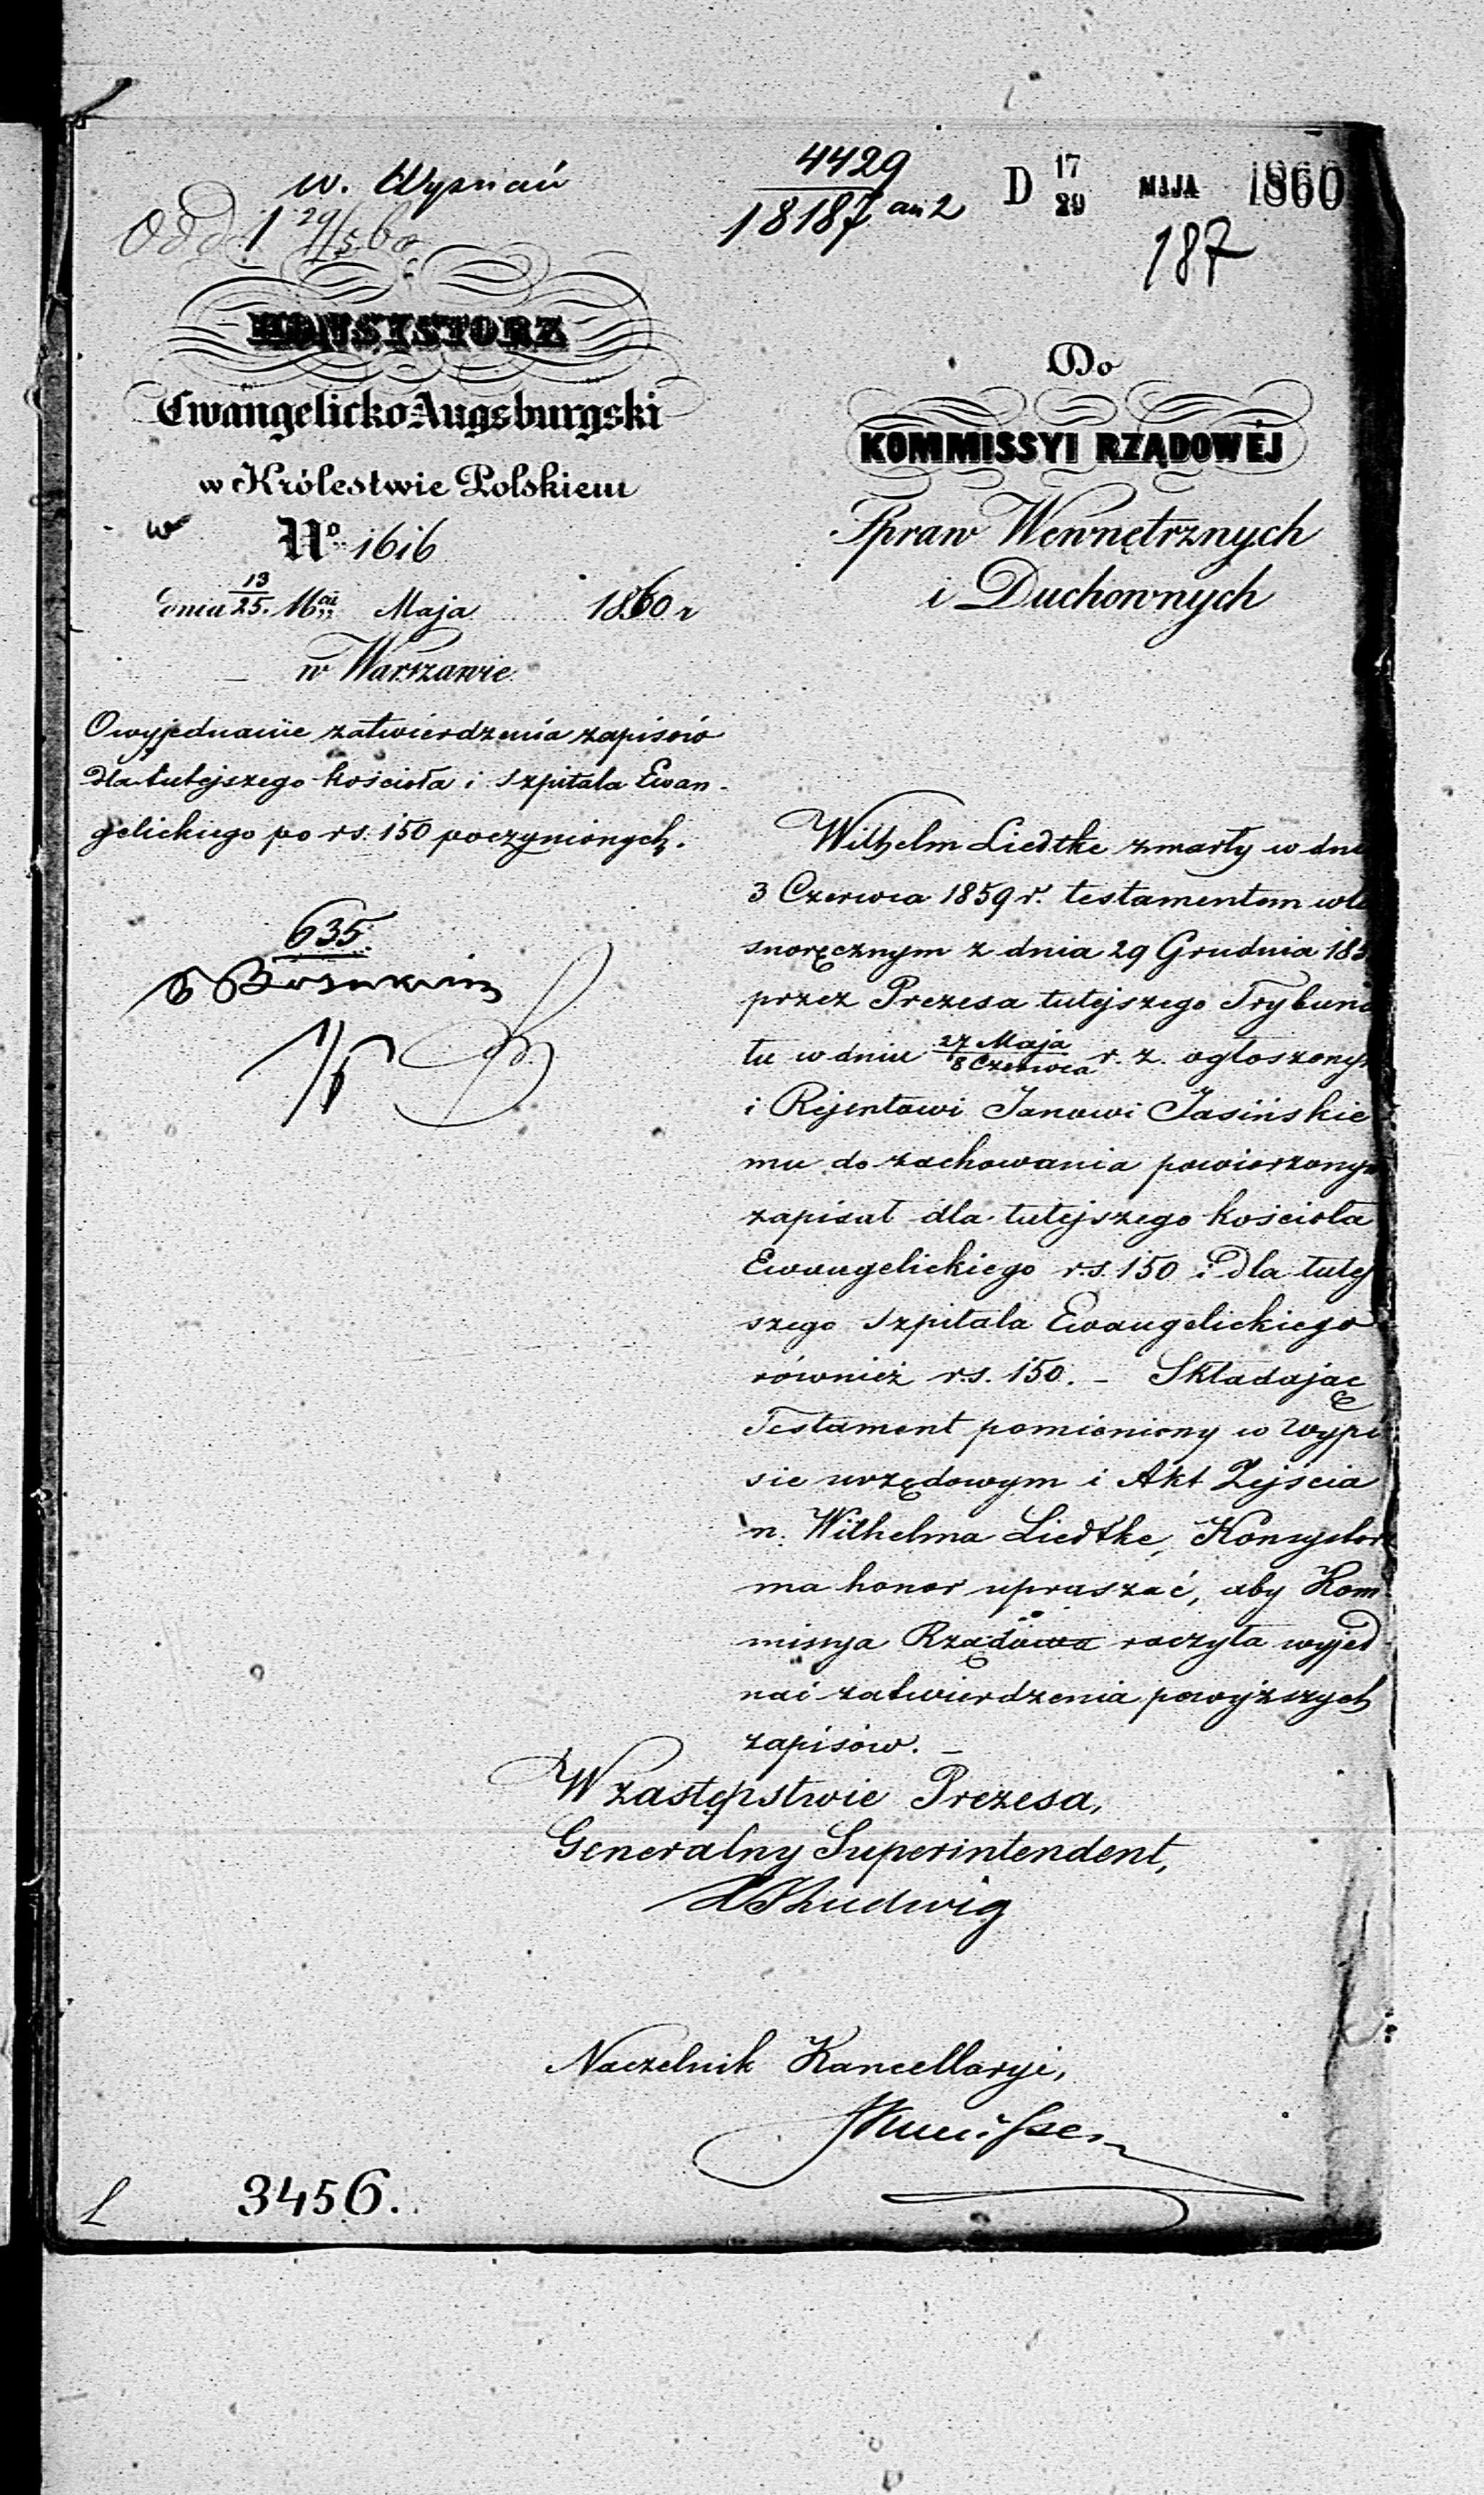 w. Wyznań
4429
18187 an 2
D 17/29 MAJA 1860
187
Odd 1 29/5 60
KONSYSTORZ
Ewangelicko-Augsburgski
w Królestwie Polskiem
w
No. 1616
dnia 13/25. Maja 1860 r
w Warszawie
O wyjednanie zatwierdzenia zapisów
dla tutejszego kościoła i szpitala Ewan-
gelickiego po rs. 150 poczynionych.
635.
Do
KOMMISSYI RZĄDOWÉJ
Spraw Wewnętrznych
i Duchownych
Wilhelm Liedtke zmarły w dni
3 Czerwca 1859 r. testamentem wła
snoręcznym z dnia 29 Grudnia 185
przez Prezesa tutejszego Trybuna
łu w dniu 27 Maja/8 Czerwca r. z. ogłoszonym
i Rejentowi Janowi Jasińskie
mu do zachowania powierzonym
zapisał dla tutejszego kościoła
Ewangelickiego rs. 150 i dla tutej
szego szpitala Ewangelickiego
również r.s. 150. – Składając
Testament pomieniony w wypi
sie urzędowym i Akt Zejścia
n. Wilhelma Liedtke, Konsystorz
ma honor upraszać, aby Kom
missya Rządowa raczyła wyjed
nać zatwierdzenia powyższych
zapisów. –
W zastępstwie Prezesa,
Generalny Superintendent,
Ludwig
Naczelnik Kancellaryi,
3456.